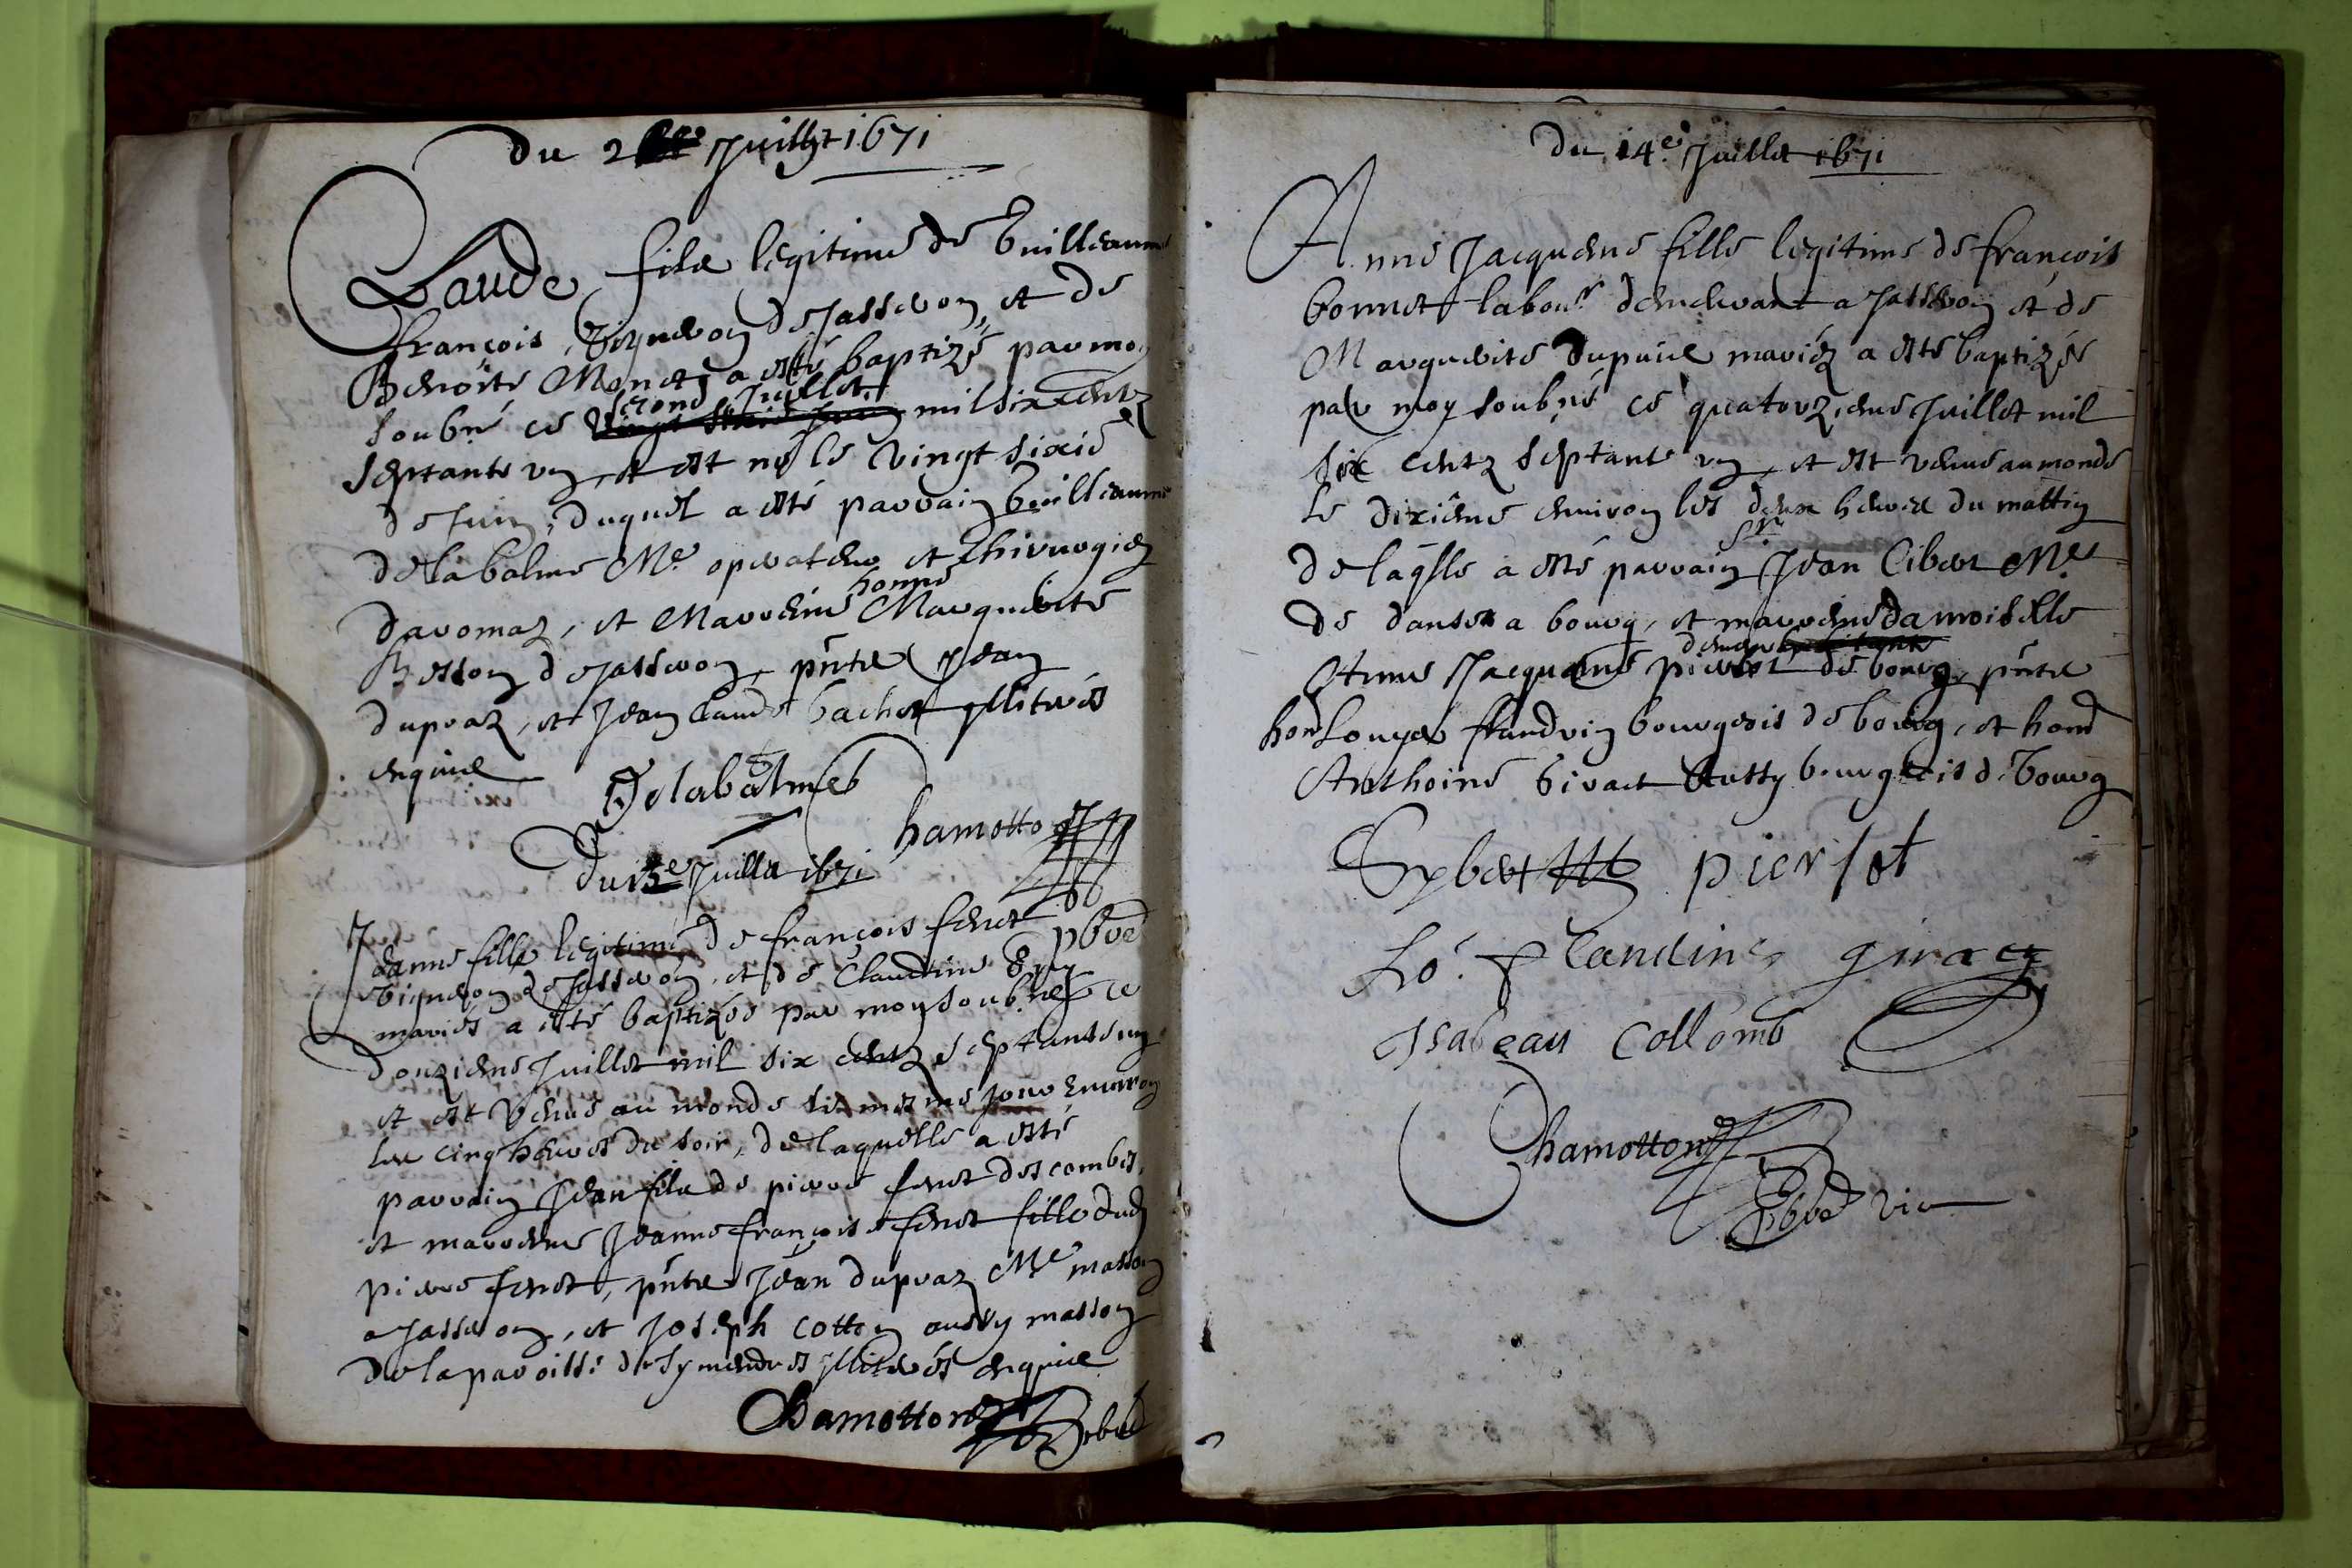 Du 2 Juillet 1671
Claude fils legitime de Guilleaume
françois, Vigneron de Jasseron, et de
Benoite Monet, a esté baptizé par moy
soubné ce second Juillet mil six centz
septante un, et est né le vingt sixie
de Juin, duquel a esté parrain Guilleaume
Delabalme Me operateur et Chirurgien
, et Marreine honne Marguerite
Besson de Jasseron, pñts Jean
dupraz, et Jean Claude bachet illiterés
enquis
Delabalme
Chamotton
Du 12e Juillet 1671
Jeanne fille legitime de françois fenet
pbre
vigneron de Jasseron, et de Claudine
mariés a esté baptizée par moy soubné ce
douziene Juillet mil six centz septante un
et est venue au monde le mesme jour environ
les cinq heures du soir, de laquelle a esté
parrain Jean fils de pierre fenet des combes,
et marreine Jeanne françoise fenet fille dud
pierre fenet, pñts Jean dupraz Me masson
a Jasseron, et Joseph cotton aussy masson
de la paroisse de Symandres illiterés enquis
Chamotton pbre
Du 14e Juillet 1671
Anne Jacquene fille legitime de françois
bonnet labour demeurant a Jasseron et de
Marguerite Dupuis mariez a esté baptizée
par moy soubné ce quatorziene Juillet mil
six centz septante un, et est venue au monde
le dixiene environ les deux heures du mattin
de laqlle a esté parrain Sr Jean Cibert Me
de danse a bourg, et marreine damoiselle
Anne Jacquene pierset de bourg, pñts
hon Louys flandrin bourgeois de bourg, et hono
Anthoine Giract bourgeois de bourg
Sybert pierset
Lo. flandin giracq
Isabeau Collomb
Chamotton
pbre vic